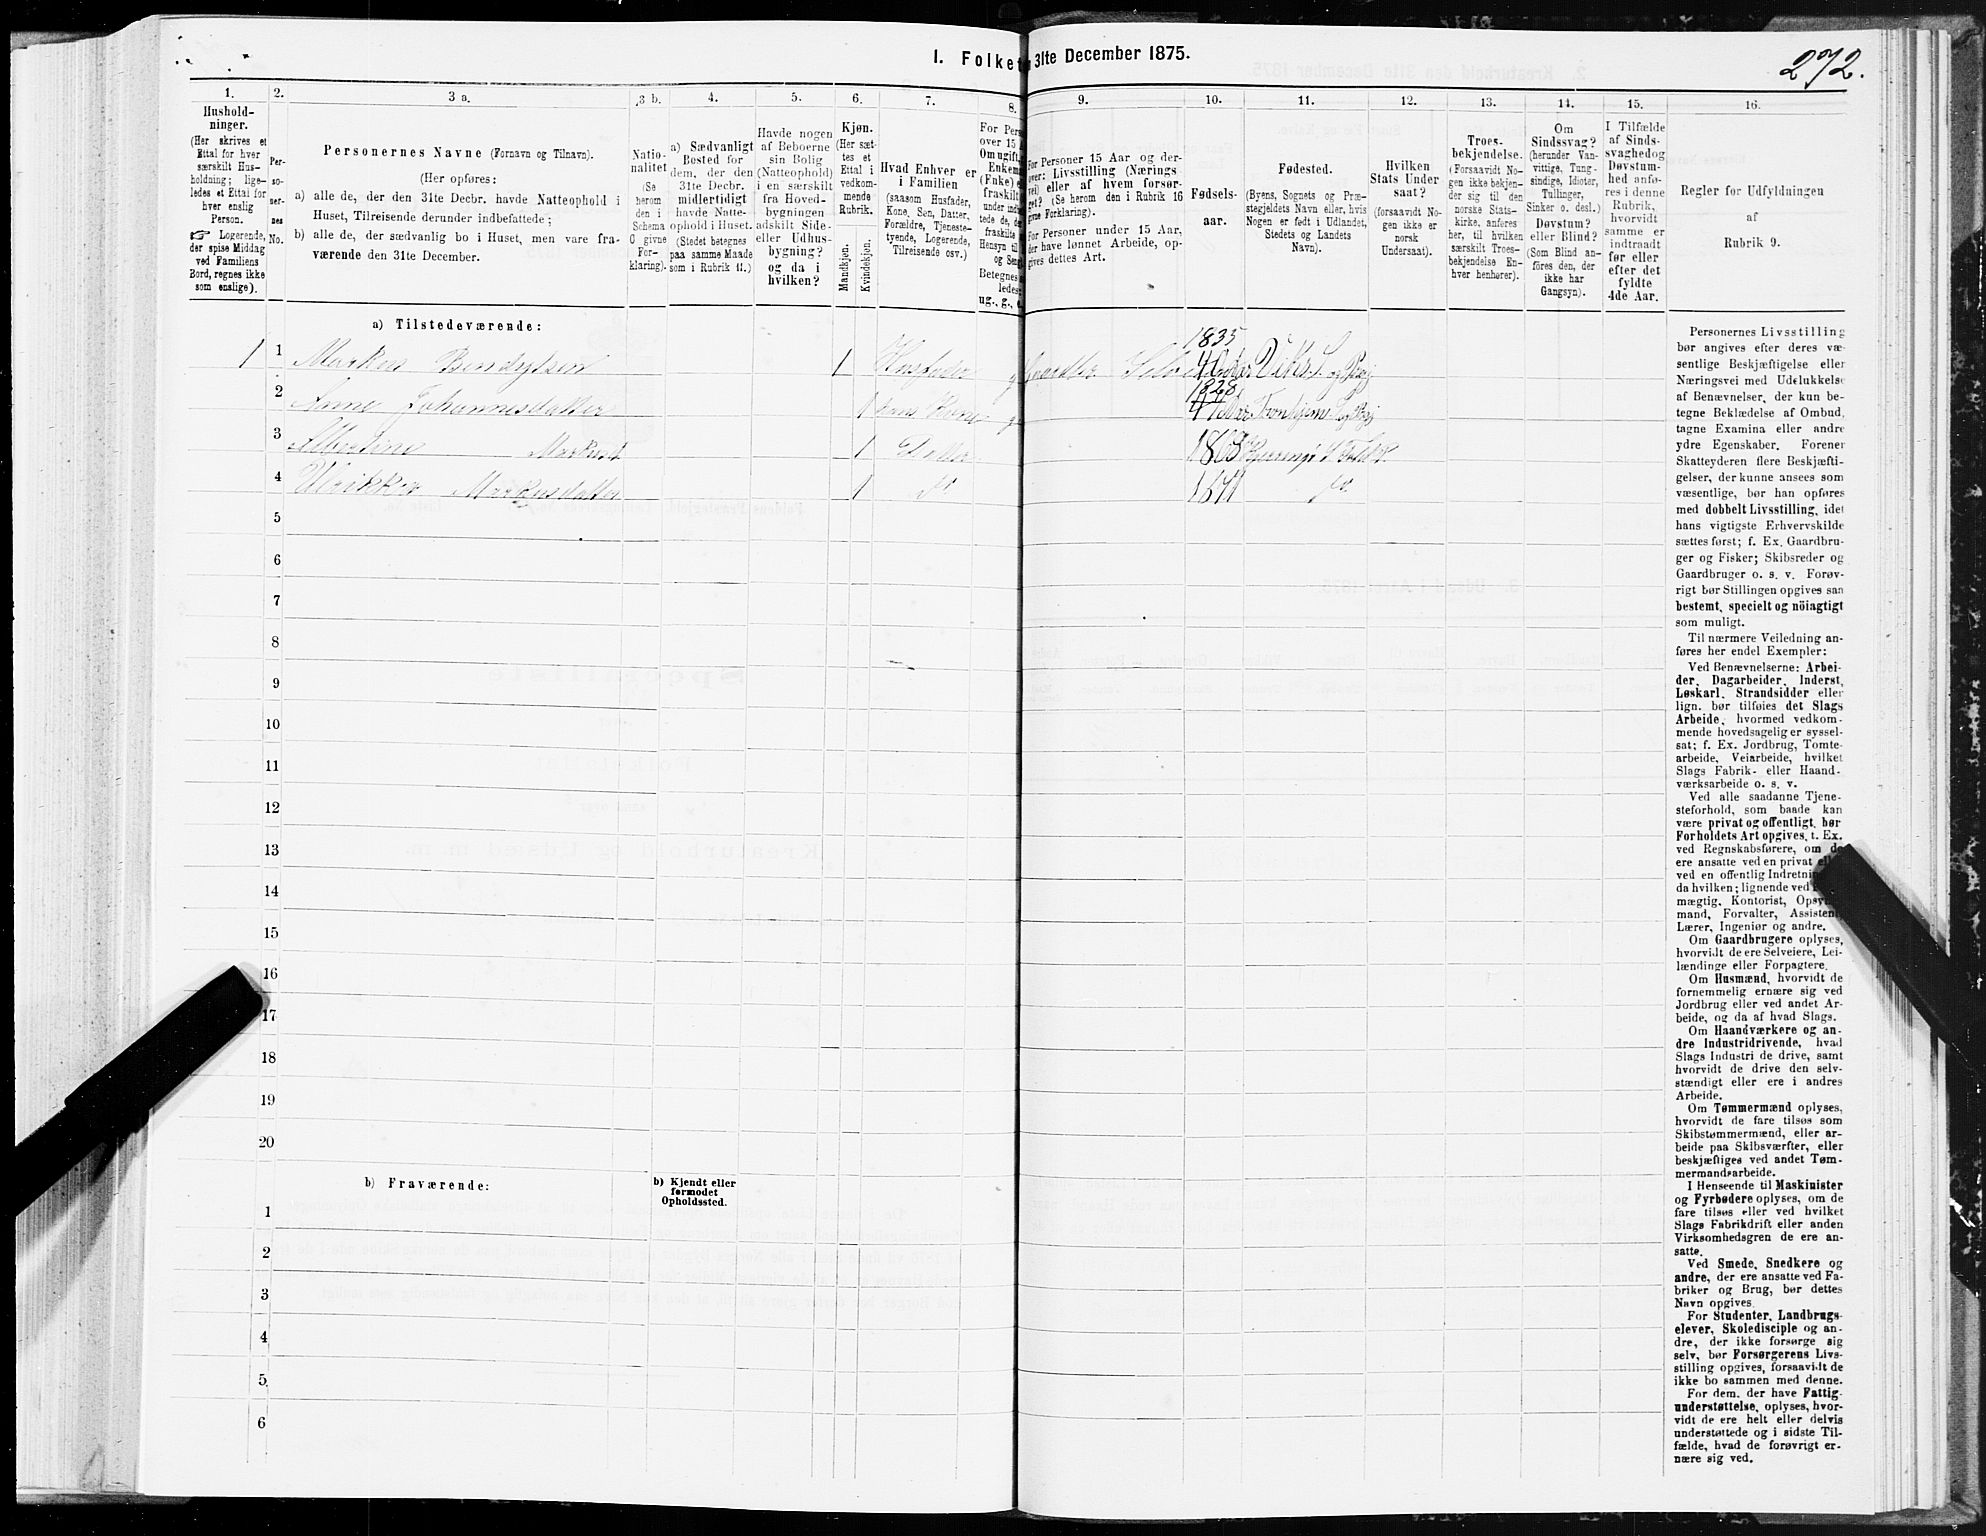 I. Folket
31te December 1875.
272.
1.
Hushold-
ninger.
(Her skrives et
Ettal for hver
særskilt Hus-
holdning; lige-
ledes et Ettal for
hver enslig
Person.
☞ Logerende,
der spise Middag
ved Familiens
Bord, regnes ikke
som enslige).
2.
Per-
so-
ner-
nes
No.
3 a.
Personernes Navne (Fornavn og Tilnavn).
(Her opføres:
a) alle de, der den 31te Decbr. havde Natteophold i
Huset, Tilreisende derunder indbefattede;
b) alle de, der sædvanlig bo i Huset, men vare fra-
værende den 31te December.
3 b.
Natio-
nalitet
(Se
herom
den i
Schema
C givne
For-
klaring).
4.
a) Sædvanligt
Bosted for
dem, der den
31te Decbr.
midlertidigt
havde Natte-
ophold i Huset.
(Stedet betegnes
paa samme Maade
som i Rubrik 11.)
5.
Havde nogen
af Beboerne
sin Bolig
(Natteophold)
i en særskilt
fra Hoved-
bygningen
adskilt Side-
eller Udhus-
bygning?
og da i
hvilken?
6.
Kjøn.
(Her sæt-
tes et
Ettal i
vedkom-
mende
Rubrik.
Mandkjøn.
Kvindekjøn.
7.
Hvad Enhver er
i Familien
(saasom Husfader,
Kone, Søn, Datter,
Forældre, Tjeneste-
tyende, Logerende,
Tilreisende osv.)
8.
For Pers
over 15 A
Om ugift,
Enkem
(Enke) e
fraskilt
under indv
tede de, d
fraskilte
Hensyn til
og Seng
Betegnes s
ledes:
ug., g., e.
9.
For Personer 15 Aar og der-
over: Livsstilling (Nærings
vei) eller af hvem forsør-
get? (Se herom den i Rubrik 16
givne Forklaring).
For Personer under 15 Aar,
der have lønnet Arbeide, op-
gives dettes Art.
10.
Fødsels-
aar.
11.
Fødested.
(Byens, Sognets og Præ-
stegjeldets Navn eller, hvis
Nogen er født i Udlandet,
Stedets og Landets
Navn).
12.
Hvilken
Stats Under
saat?
(forsaavidt No-
gen ikke er
norsk
Undersaat).
13.
Troes-
bekjendelse.
(Forsaavidt No-
gen ikke bekjen-
der sig til den
norske Stats-
kirke, anføres
her, til hvilken
særskilt Troes-
bekjendelse En-
hver henhører).
14.
Om
Sindssvag?
(herunder Van-
vittige, Tung-
sindige, Idioter,
Tullinger,
Sinker o. desl.)
Døvstum?
eller Blind?
(Som Blind an-
føres den, der
ikke har
Gangsyn).
15.
I Tilfælde
af Sinds-
svaghed og
Døvstum-
hed anfø-
res i denne
Rubrik,
hvorvidt
samme er
indtraadt
før eller
efter det
fyldte
4de Aar.
16.
Regler for Udfyldningen
af
Rubrik 9.
a) Tilstedeværende:
1 1 Markus Bendigtsen 1 Husfader g Gaardbr Selveier 1835
2 Anne Johannesdatter 1 hans Kone g 1828
3 Albertine Markusd 1 Datter
4 Ulrikke Markusdatter 1 do. 1871 do.
5
6
7
8
9
10
11
12
13
14
15
16
17
18
19
20
b) Fraværende:
b) Kjendt eller
formodet
Opholdssted.
1
2
3
4
5
6
Personernes Livsstilling
bør angives efter deres væ-
sentlige Beskjæftigelse eller
Næringsvei med Udelukkelse
af Benævnelser, der kun be-
tegne Beklædelse af Ombud,
tagne Examina eller andre
ydre Egenskaber. Forener
Skatteyderen flere Beskjæfti-
gelser, der kunne ansees som
væsentlige, bør han opføres
med dobbelt Livsstilling, idet
hans vigtigste Erhvervskilde
sættes først; f. Ex. Gaardbru-
ger og Fisker; Skibsreder og
Gaardbruger o. s. v. Forøv-
rigt bør Stillingen opgives saa
bestemt, specielt og nöiagtigt
som muligt.
Til nærmere Veiledning an-
føres her endel Exempler:
Ved Benævnelserne: Arbei-
der, Dagarbeider, Inderst,
Løskarl, Strandsidder eller
lign. bør tilføies det Slags
Arbeide, hvormed vedkom-
mende hovedsagelig er syssel-
sat; f. Ex. Jordbrug, Tomte-
arbeide, Veiarbeide, hvilket
Slags Fabrik- eller Haand-
værksarbeide o. s. v.
Ved alle saadanne Tjene-
steforhold, som baade kan
være privat og offentligt, bør
Forholdets Art opgives, t. Ex.
ved Regnskabsførere, om de
ere ansatte ved en privat el
ved en offentlig Indretnin
da hvilken; lignende ved
mægtig, Kontorist, Opsy
mand, Forvalter, Assistent,
Lærer, Ingeniør og andre.
Om Gaardbrugere oplyses,
hvorvidt de ere Selveiere, Lei-
lændinge eller Forpagtere.
Om Husmænd, hvorvidt de
fornemmelig ernære sig ved
Jordbrug eller ved andet Ar-
beide, og da af hvad Slags.
Om Haandværkere og an-
dre Industridrivende, hvad
Slags Industri de drive, samt
hvorvidt de drive den selv-
stændigt eller ere i andres
Arbeide.
Om Tømmermænd oplyses,
hvorvidt de fare tilsøs som
Skibstømmermænd, eller ar-
beide paa Skibsværfter, eller
beskjæftiges ved andet Tøm-
mermandsarbeide.
I Henseende til Maskinister
og Fyrbødere oplyses, om de
fare tilsøs eller ved hvilket
Slags Fabrikdrift eller anden
Virksomhedsgren de ere an-
satte.
Ved Smede, Snedkere og
andre, der ere ansatte ved Fa-
briker og Brug, bør dettes
Navn opgives.
For Studenter, Landbrugs-
elever, Skoledisciple og an-
dre, der ikke forsørge sig
selv, bør Forsørgerens Livs-
stilling opgives, forsaavidt de
ikke bo sammen med denne.
For dem, der have Fattig-
understøttelse, oplyses, hvor-
vidt de ere helt eller delvis
understøttede og i sidste Til-
fælde, hvad de forøvrigt er-
nære sig ved.